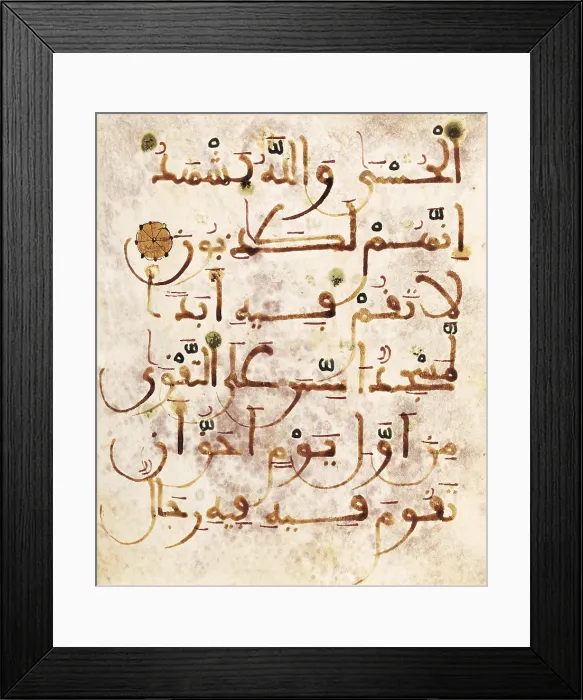 الْحُسْنَى وَاللَّهُ يَشْهَدُ
إِنَّهُمْ لَكَاذِبُونَ
لَا تَقُمْ فِيهِ أَبَدًا
لَّمَسْجِدٌ أُسِّسَ عَلَى التَّقْوَى
مِنْ أَوَّلِ يَوْمٍ أَحَقُّ أَن
تَقُومَ فِيهِ فِيهِ رِجَالٌ